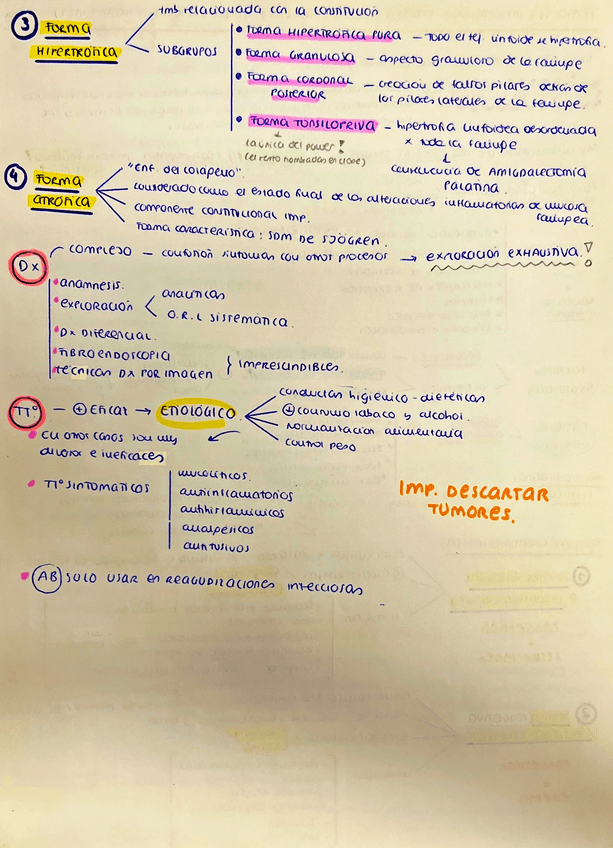 ③ FORMA HIPERTRÓFICA
tmb relacionada con la constitución
SUBGRUPOS
• FORMA HIPERTRÓFICA PURA – TODO el tej. linfoide se hipertrofia.
• FORMA GRANULOSA – aspecto granuloso de la faringe
• FORMA CORDONAL POSTERIOR – creación de falsos pilares detrás de
los pilares laterales de la faringe.
• FORMA TONSILOPRIVA – hipertrofia linfoidea desordenada
x toda la faringe
↓
consecuencia de AMIGDALECTOMIA
PALATINA.
↓
la única del power!
(el resto nombradas en clase)
④ FORMA ATRÓFICA
"Enf. del colapero".
considerado como el estado final de las alteraciones inflamatorias de mucosa
faríngea.
componente constitucional imp.
FORMA CARACTERÍSTICA: SDM DE SJÖGREN.
DX
COMPLEJO – confusión síntomas con otros procesos → EXPLORACIÓN EXHAUSTIVA!
• ANAMNESIS.
• EXPLORACIÓN < analíticas
O.R.L SISTEMÁTICA.
• DX DIFERENCIAL.
• FIBROENDOSCOPIA
• TÉCNICAS DX POR IMAGEN } IMPRESCINDIBLES.
TTº – ⊕ EFICAZ → ETIOLÓGICO
conductas higiénico-dietéticas
⊕ consumo tabaco y alcohol.
normalización alimentaria
control peso
• En otros casos son muy
diversos e ineficaces
• TTº SINTOMÁTICOS
mucolíticos.
antiinflamatorios
antihistamínicos
analgésicos
antitusivos
IMP. DESCARTAR
TUMORES.
• AB SOLO USAR EN REAGUDIZACIONES INFECCIOSAS